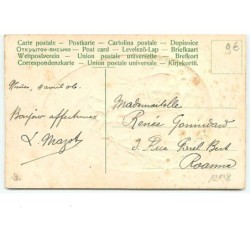 Carte postale – Postkarte – Cartolina postale – Dopisnice
Открытое письмо – Post card – Levelező-Lap – Briefkaart
Weltpostverein – Union postale universelle – Brefkort
Correspondenzkarte – Union postale universale – Kirjekortti.
96
9 août 06.
Mademoiselle
Bonjour affectueux
Renée
L. Mazot
3, Rue Paul Bert
Roanne